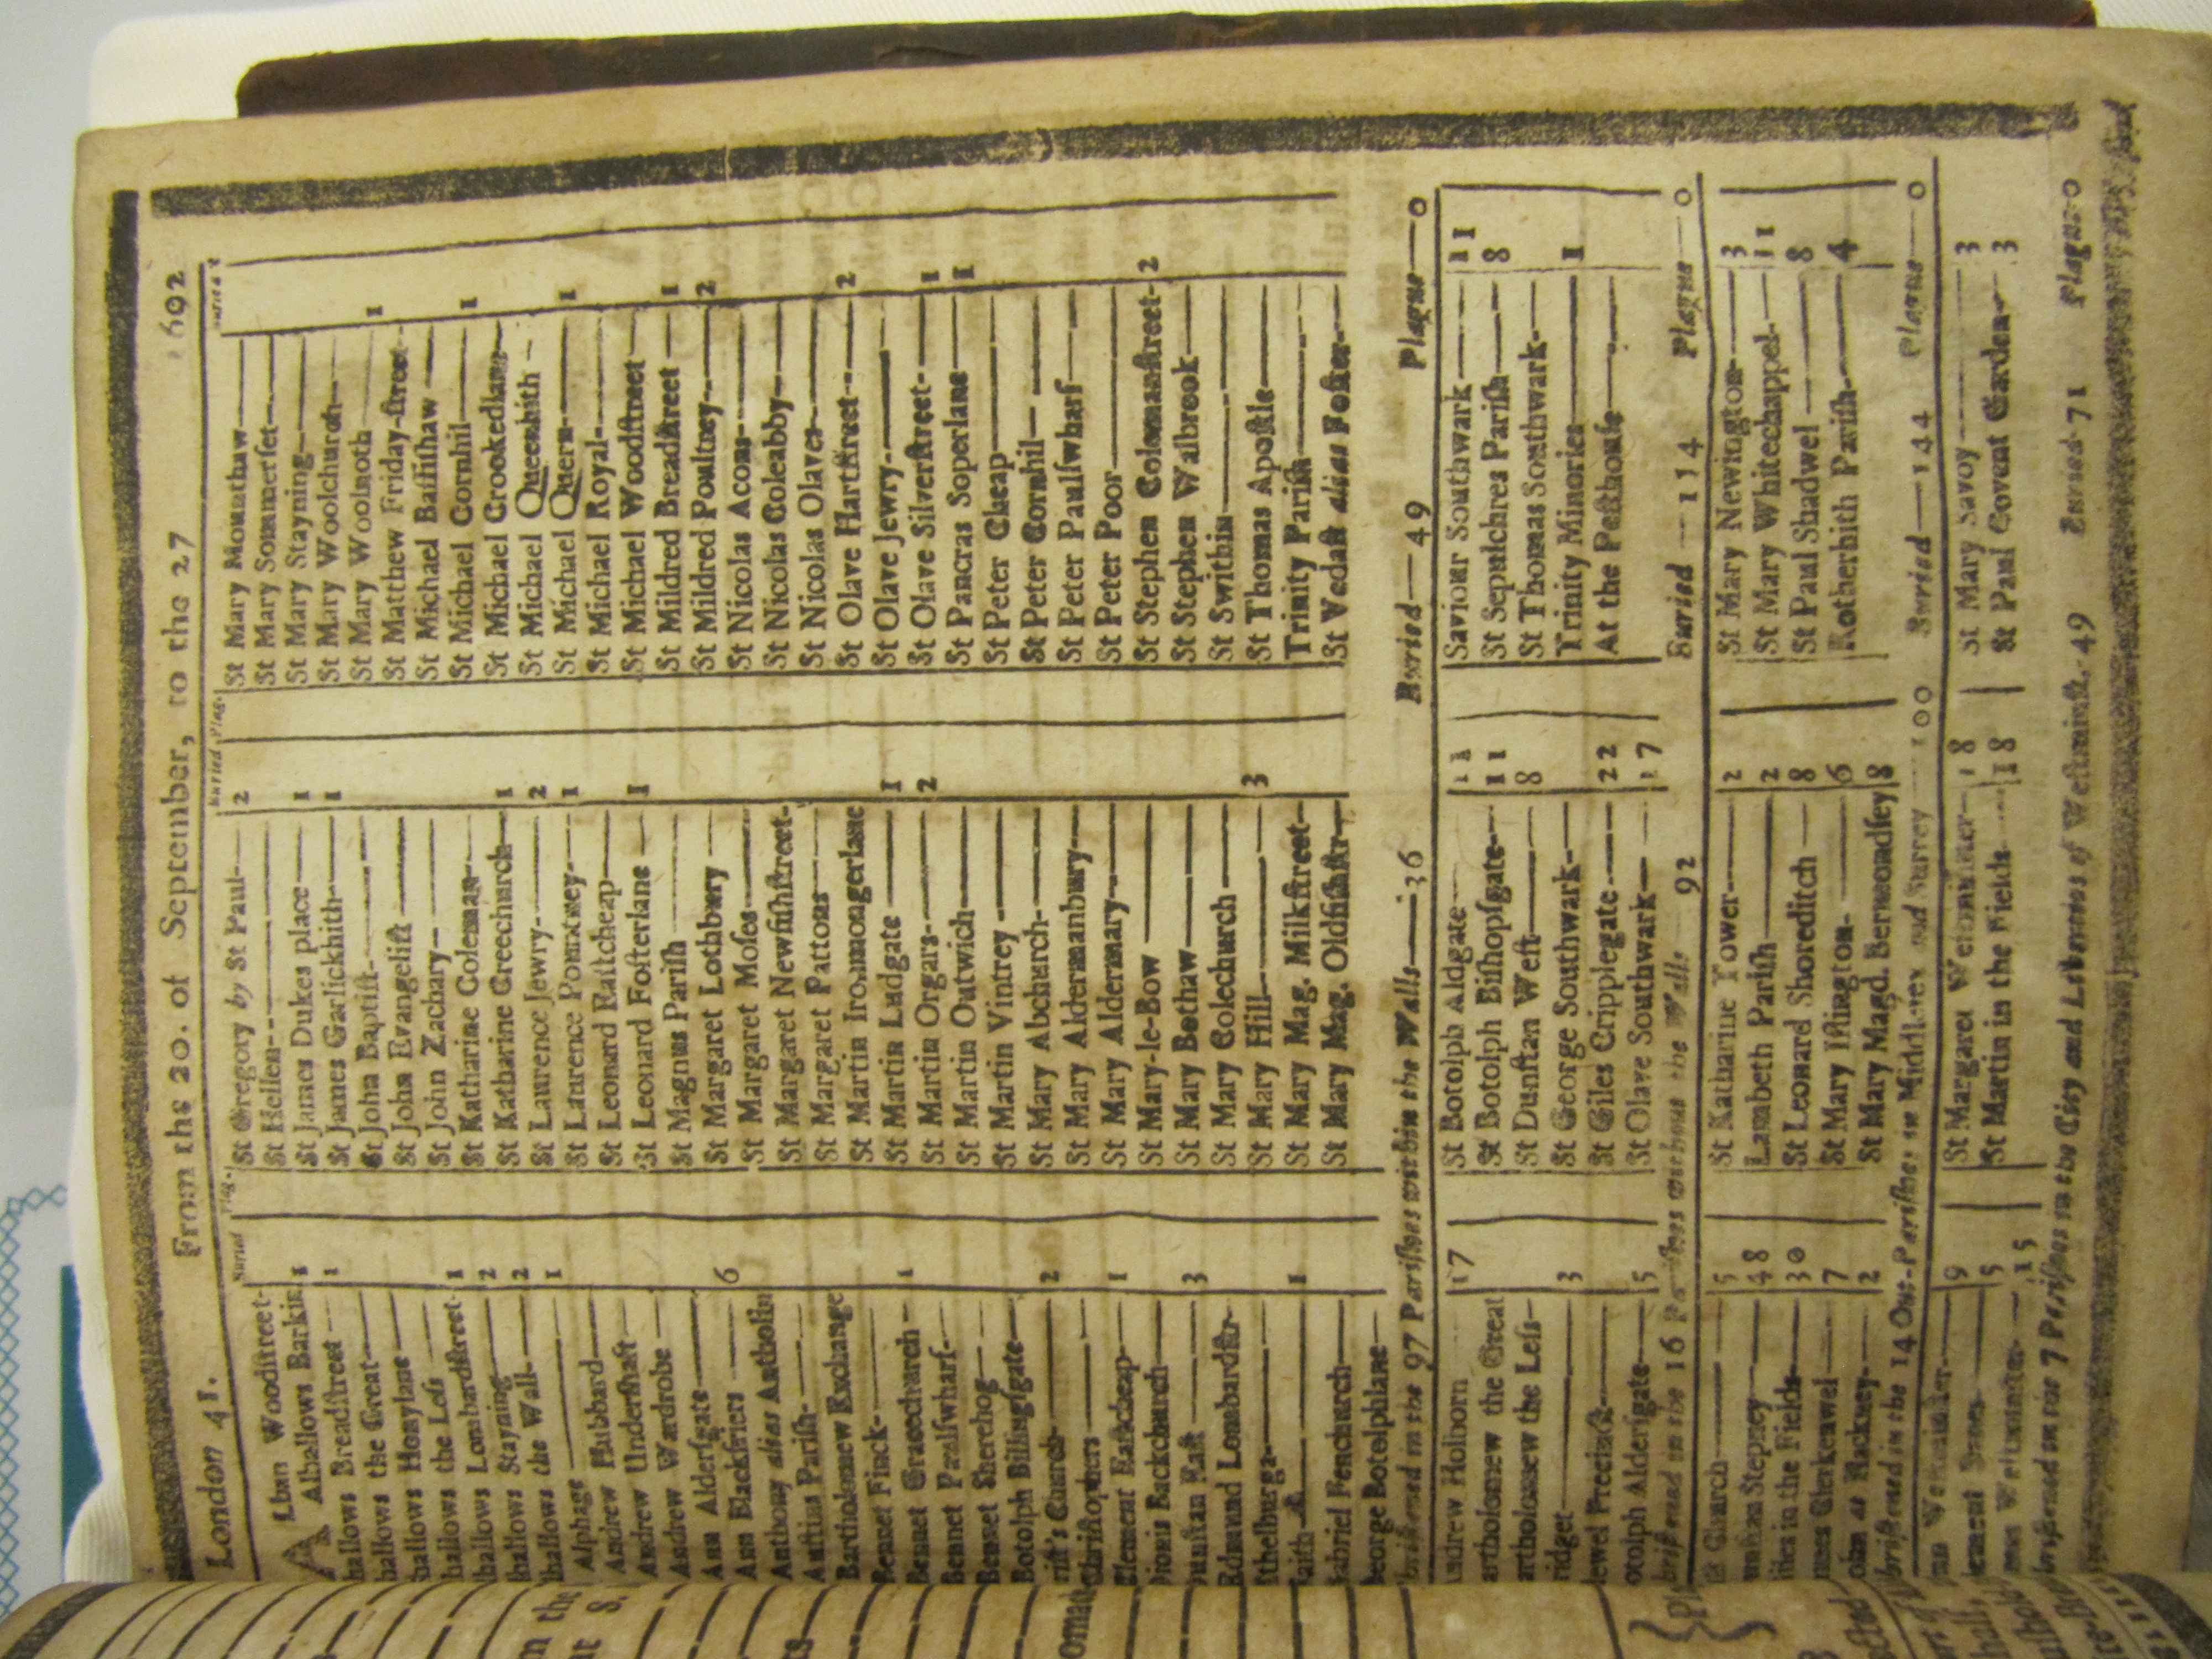 London 41. From the 20. of September, to the 27 1692
Buried Plag. Buried Plag. Buried
ALban Woodſtreet-
Alhallows Barkin 1
hallows Breadſtreet — 1
hallows the Great—
hallows Honylane —
hallows the Leſs —
hallows Lombardſtreet- 1
hallows Stayning— 2
hallows the Wall— 2
Alphage — 1
Andrew Hubbard—
Andrew Underſhaft —
Andrew Wardrobe —
Ann Alderſgate—
Ann Blackfriers — 6
Anthony alias Antholin
Auſtins Pariſh-
Bartholomew Exchange
Bennet Finck-
Bennet Gracechurch— 1
Bennet Paulſwharf-
Bennet Sherehog—
Botolph Billingſgate—
riſt's Church- 2
Chriſtophers —
Clement Eaſtcheap— 1
Dionis Backchurch—
unſtan Eaſt — 3
Edmund Lombardſtr-
Ethelburga-
Faith — 1
Gabriel Fenchurch—
George Botolphlane—
St Gregory by St Paul— 2
St Hellen—
St James Dukes place— 1
St James Garlickhith— 1
St John Baptiſt—
St John Evangeliſt —
St John Zachary—
St Katharine Coleman—
St Katharine Creechurch— 1
St Laurence Jewry- 2
St Laurence Pountney- 1
St Leonard Eaſtcheap—
St Leonard Foſterlane — 1
St Magnus Pariſh —
St Margaret Lothbury —
St Margaret Moſes—
St Margaret Newfiſhſtreet-
St Margaret Pattons —
St Martin Ironmongerlane
St Martin Ludgate — 1
St Martin Orgars- 2
St Martin Outwich—
St Martin Vintrey —
St Mary Abchurch-
St Mary Aldermanbury—
St Mary Aldermary—
St Mary-le-Bow —
St Mary Bothaw—
St Mary Colechurch —
St Mary Hill— 3
St Mary Mag. Milkſtreet—
St Mary Mag. Oldfiſhſtr—
St Mary Mounthaw—
St Mary Sommerſet—
St Mary Stayning—
St Mary Woolchurch—
St Mary Woolnoth — 1
St Matthew Friday-ſtreet-
St Michael Baſſiſhaw —
St Michael Cornhil— 1
St Michael Crookedlane—
St Michael Queenhith —
St Michael Quern— 1
St Michael Royal—
St Michael Woodſtreet —
St Mildred Breadſtreet — 1
St Mildred Poultrey— 2
St Nicolas Acons—
St Nicolas Coleabby—
St Nicolas Olaves—
St Olave Hartſtreet— 2
St Olave Jewry—
St Olave Silverſtreet- 1
St Pancras Soperlane— 1
St Peter Cheap—
St Peter Cornhil—
St Peter Paulſwharf—
St Peter Poor—
St Stephen Colemanſtreet- 2
St Stephen Walbrook—
St Swithin—
St Thomas Apoſtle—
Trinity Pariſh—
St Vedaſt alias Foſter—
briſtened in the 97 Pariſhes within the Walls—36 Buried—49 Plague—0
Andrew Holborn 17
artholomew the Great
artholomew the Leſs—
ridget— 3
ewel Precinct—
otolph Alderſgate— 5
St Botolph Aldgate— 11
St Botolph Biſhopſgate— 11
St Dunſtan Weſt— 8
St George Southwark—
St Giles Cripplegate— 22
St Olave Southwark— 17
Saviour Southwark— 11
St Sepulchres Pariſh— 8
St Thomas Southwark-
Trinity Minories— 1
At the Peſthouſe—
briſtened in the 16 Pariſhes without the Walls 92 Buried — 114 Plague—0
Church— 5
unſtan Stepney— 48
iles in the Fields— 30
mes Clerkenwel— 7
ohn at Hackney— 2
St Katharine Tower— 2
Lambeth Pariſh— 2
St Leonard Shoreditch — 8
St Mary Iſlington- 6
St Mary Magd. Bermondſey 8
St Mary Newington— 3
St Mary Whitechappel— 11
St Paul Shadwel — 8
Rotherhith Pariſh- 4
briſtened in the 14 Out-Pariſhes in Middleſex and Surrey 100 Buried—144 Plague—0
Weſtminſter— 9
lement Danes— 5
Weſtminſter— 15
St Margaret Weſtminſter— 18
St Martin in the Fields— 18
St Mary Savoy— 3
St Paul Covent Garden— 3
briſtened in the 7 Pariſhes in the City and Liberties of Weſtminſt. 49 Buried-71 Plague-0